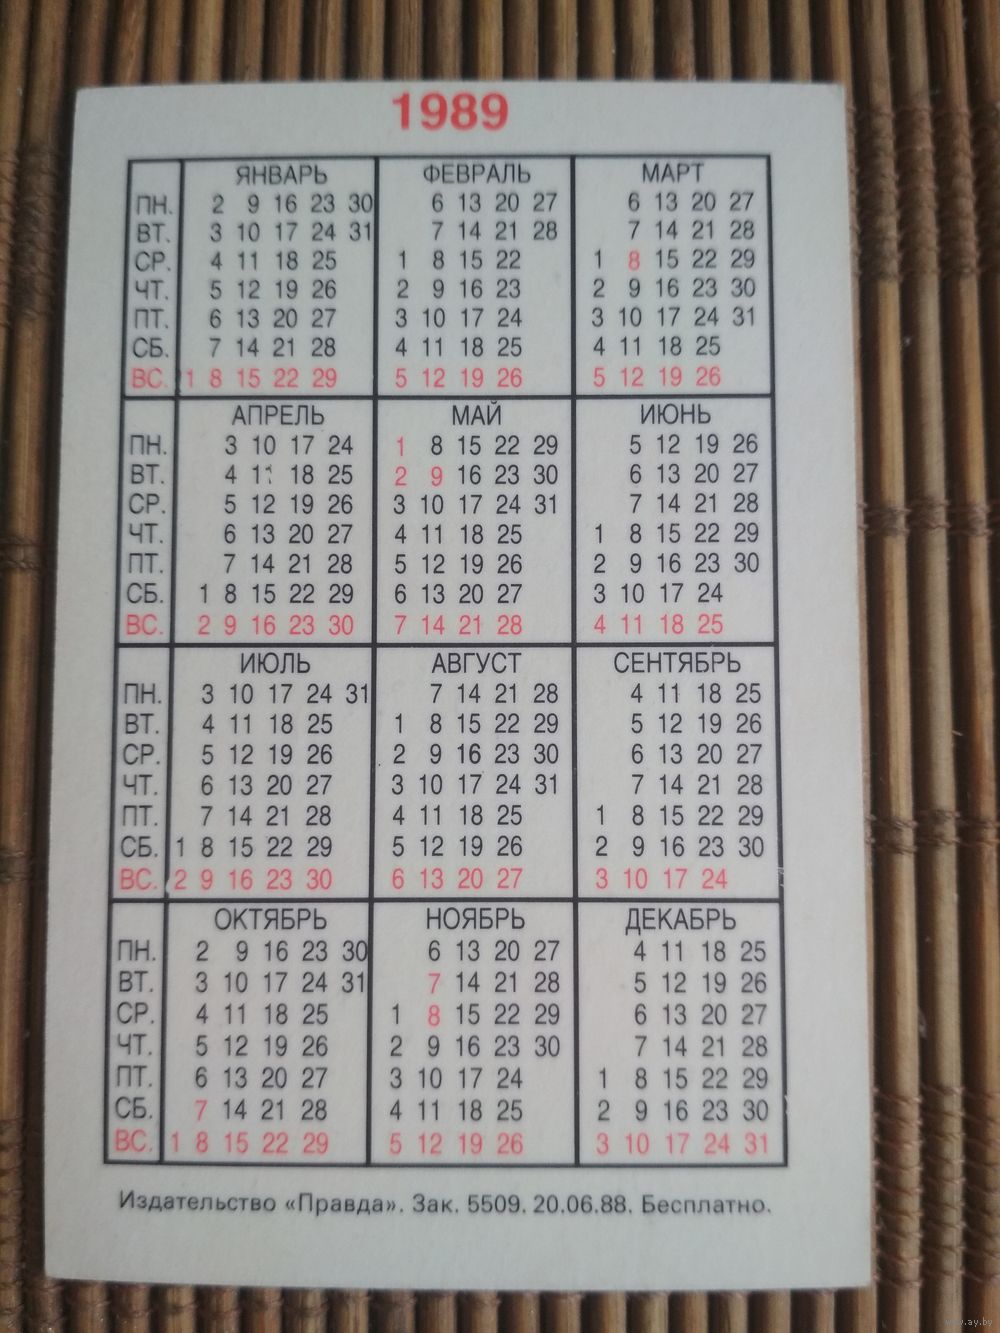 1989
ЯНВАРЬ ФЕВРАЛЬ МАРТ
ПН. 2 9 16 23 30 6 13 20 27 6 13 20 27
ВТ. 3 10 17 24 31 7 14 21 28 7 14 21 28
СР. 4 11 18 25 1 8 15 22 1 8 15 22 29
ЧТ. 5 12 19 26 2 9 16 23 2 9 16 23 30
ПТ. 6 13 20 27 3 10 17 24 3 10 17 24 31
СБ. 7 14 21 28 4 11 18 25 4 11 18 25
ВС. 1 8 15 22 29 5 12 19 26 5 12 19 26
АПРЕЛЬ МАЙ ИЮНЬ
ПН. 3 10 17 24 1 8 15 22 29 5 12 19 26
ВТ. 4 11 18 25 2 9 16 23 30 6 13 20 27
СР. 5 12 19 26 3 10 17 24 31 7 14 21 28
ЧТ. 6 13 20 27 4 11 18 25 1 8 15 22 29
ПТ. 7 14 21 28 5 12 19 26 2 9 16 23 30
СБ. 1 8 15 22 29 6 13 20 27 3 10 17 24
ВС. 2 9 16 23 30 7 14 21 28 4 11 18 25
ИЮЛЬ АВГУСТ СЕНТЯБРЬ
ПН. 3 10 17 24 31 7 14 21 28 4 11 18 25
ВТ. 4 11 18 25 1 8 15 22 29 5 12 19 26
СР. 5 12 19 26 2 9 16 23 30 6 13 20 27
ЧТ. 6 13 20 27 3 10 17 24 31 7 14 21 28
ПТ. 7 14 21 28 4 11 18 25 1 8 15 22 29
СБ. 1 8 15 22 29 5 12 19 26 2 9 16 23 30
ВС. 2 9 16 23 30 6 13 20 27 3 10 17 24
ОКТЯБРЬ НОЯБРЬ ДЕКАБРЬ
ПН. 2 9 16 23 30 6 13 20 27 4 11 18 25
ВТ. 3 10 17 24 31 7 14 21 28 5 12 19 26
СР. 4 11 18 25 1 8 15 22 29 6 13 20 27
ЧТ. 5 12 19 26 2 9 16 23 30 7 14 21 28
ПТ. 6 13 20 27 3 10 17 24 1 8 15 22 29
СБ. 7 14 21 28 4 11 18 25 2 9 16 23 30
ВС. 1 8 15 22 29 5 12 19 26 3 10 17 24 31
Издательство «Правда». Зак. 5509. 20.06.88. Бесплатно.
www.ay.by